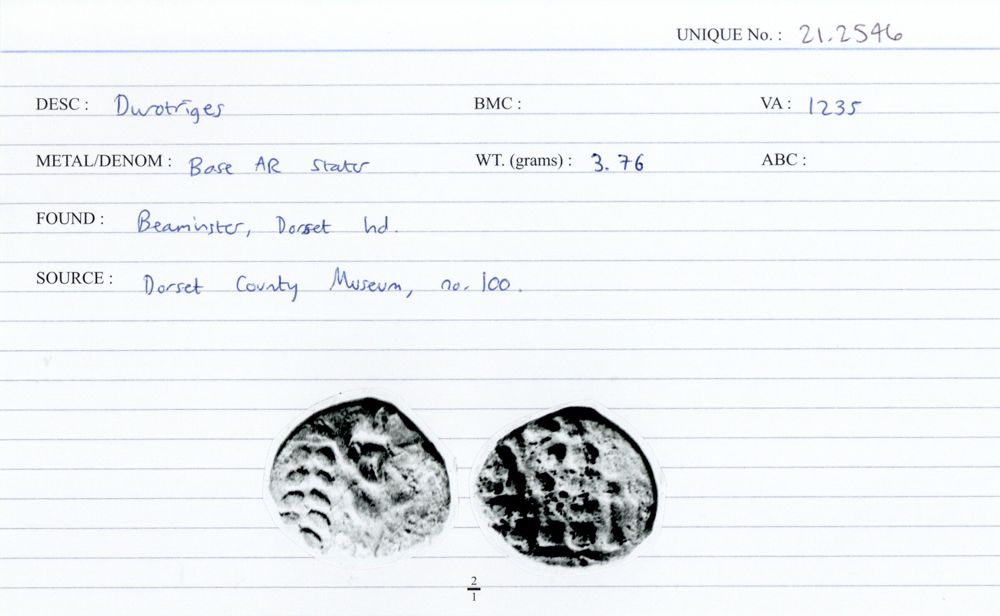 UNIQUE No. : 21.2546
DESC : Durotriges BMC : VA : 1235
METAL/DENOM : Base AR stater WT. (grams) : 3.76 ABC :
FOUND : Beaminster, Dorset hd.
SOURCE : Dorset County Museum, no. 100.
2
1